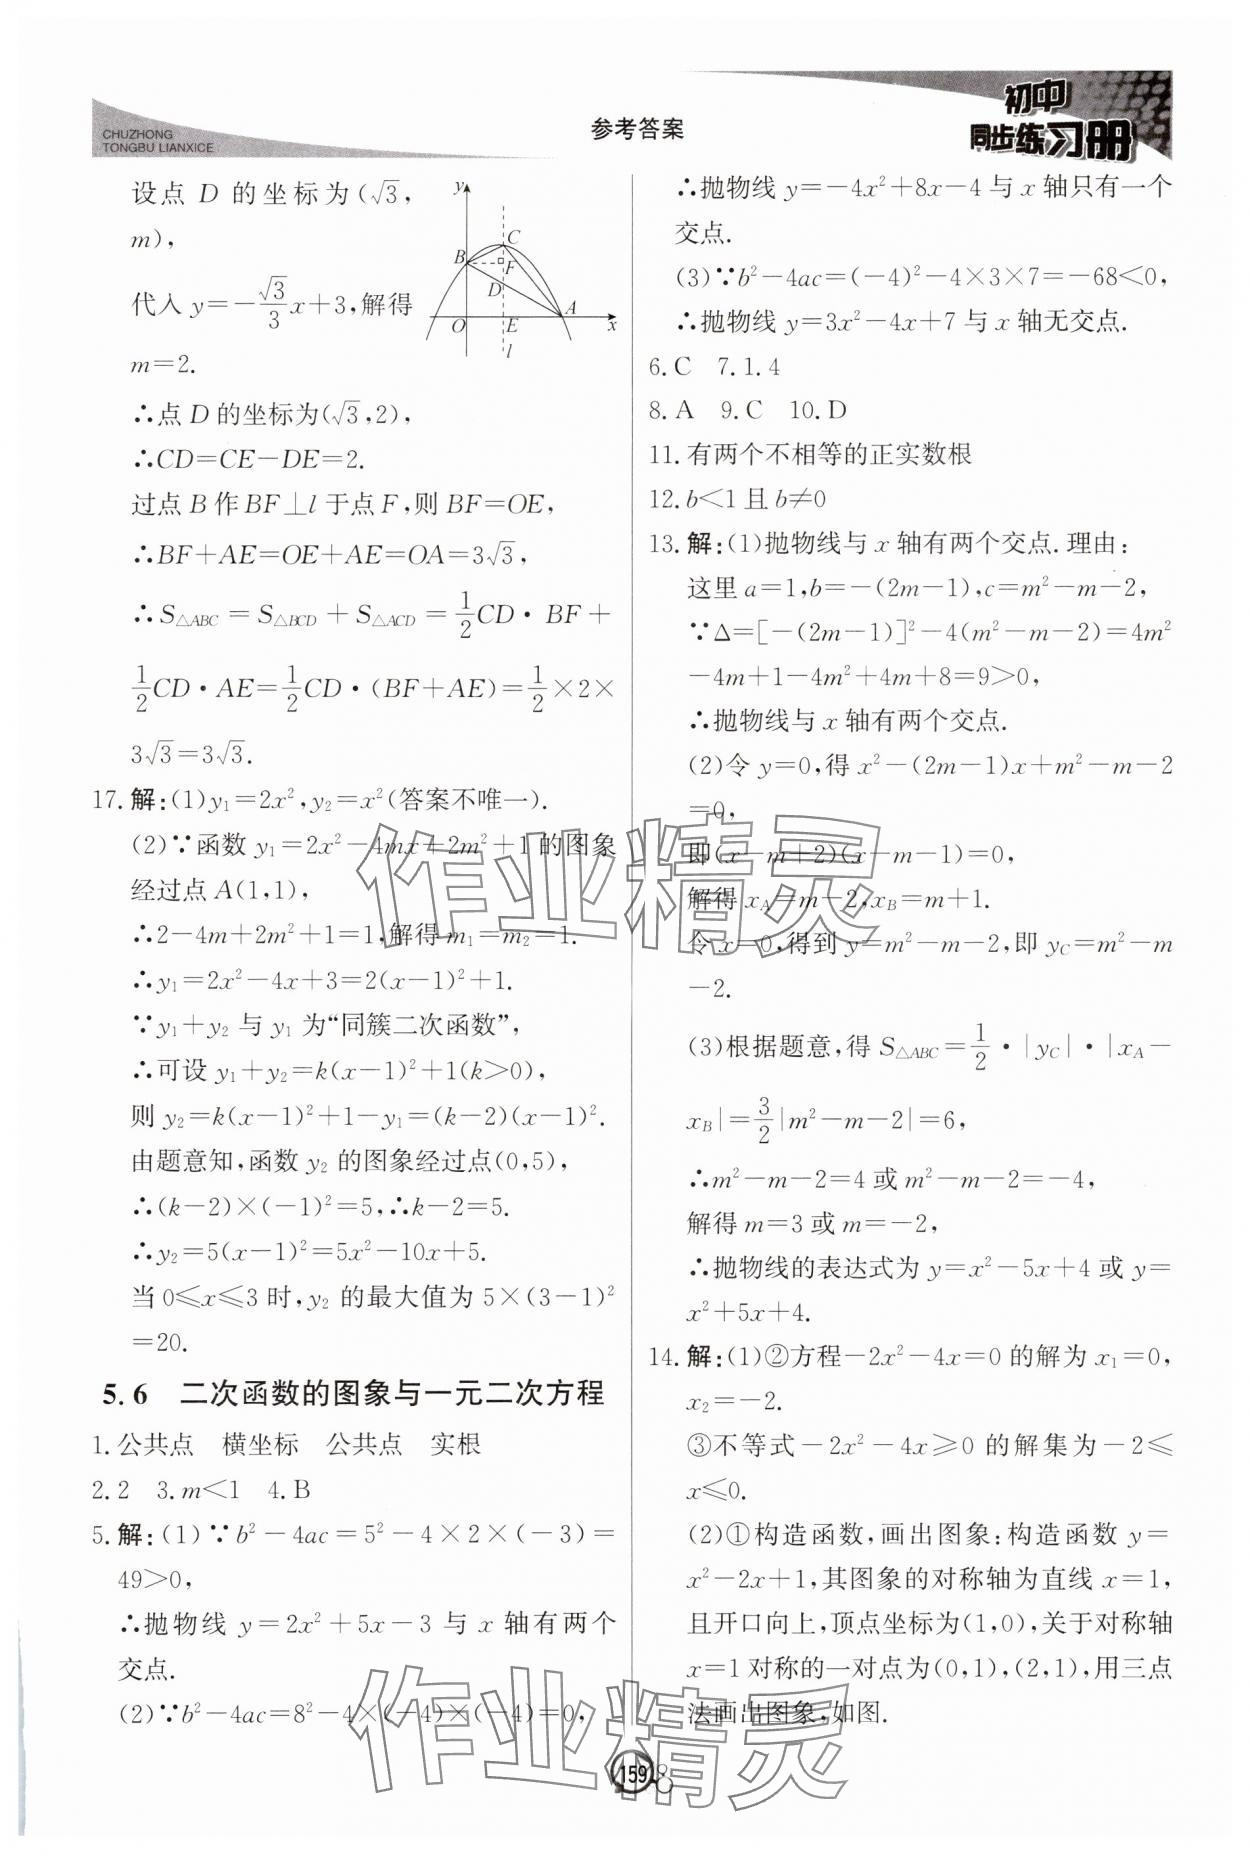 CHUZHONG
TONGBU LIANXICE
参考答案
初中
同步练习册
设点 D 的坐标为(√3,
m),
代入 y=-√3/3x+3,解得
m=2.
y
C
B
F
D
A
O
E
x
l
∴点 D 的坐标为(√3,2),
∴CD=CE-DE=2.
过点 B 作 BF⊥l 于点 F,则 BF=OE,
∴BF+AE=OE+AE=OA=3√3,
∴S△ABC=S△BCD+S△ACD=1/2CD·BF+
1/2CD·AE=1/2CD·(BF+AE)=1/2×2×
3√3=3√3.
17.解:(1)y₁=2x²,y₂=x²(答案不唯一).
(2)∵函数 y₁=2x²-4mx+2m²+1 的图象
经过点 A(1,1),
∴2-4m+2m²+1=1,解得 m₁=m₂=1.
∴y₁=2x²-4x+3=2(x-1)²+1.
∵y₁+y₂ 与 y₁ 为“同簇二次函数”,
∴可设 y₁+y₂=k(x-1)²+1(k>0),
则 y₂=k(x-1)²+1-y₁=(k-2)(x-1)².
由题意知,函数 y₂ 的图象经过点(0,5),
∴(k-2)×(-1)²=5,∴k-2=5.
∴y₂=5(x-1)²=5x²-10x+5.
当 0≤x≤3 时,y₂ 的最大值为 5×(3-1)²
=20.
5.6 二次函数的图象与一元二次方程
1.公共点 横坐标 公共点 实根
2.2 3.m<1 4.B
5.解:(1)∵b²-4ac=5²-4×2×(-3)=
49>0,
∴抛物线 y=2x²+5x-3 与 x 轴有两个
交点.
(2)∵b²-4ac=8²-4×(-4)×(-4)=0,
∴抛物线 y=-4x²+8x-4 与 x 轴只有一个
交点.
(3)∵b²-4ac=(-4)²-4×3×7=-68<0,
∴抛物线 y=3x²-4x+7 与 x 轴无交点.
6.C 7.1.4
8.A 9.C 10.D
11.有两个不相等的正实数根
12.b<1 且 b≠0
13.解:(1)抛物线与 x 轴有两个交点.理由:
这里 a=1,b=-(2m-1),c=m²-m-2,
∵Δ=[-(2m-1)]²-4(m²-m-2)=4m²
-4m+1-4m²+4m+8=9>0,
∴抛物线与 x 轴有两个交点.
(2)令 y=0,得 x²-(2m-1)x+m²-m-2
=0,
即(x-m+2)(x-m-1)=0,
解得 x_A=m-2,x_B=m+1.
令 x=0,得到 y=m²-m-2,即 y_C=m²-m
-2.
(3)根据题意,得 S△ABC=1/2·|y_C|·|x_A-
x_B|=3/2|m²-m-2|=6,
∴m²-m-2=4 或 m²-m-2=-4,
解得 m=3 或 m=-2,
∴抛物线的表达式为 y=x²-5x+4 或 y=
x²+5x+4.
14.解:(1)②方程-2x²-4x=0 的解为 x₁=0,
x₂=-2.
③不等式-2x²-4x≥0 的解集为-2≤
x≤0.
(2)①构造函数,画出图象:构造函数 y=
x²-2x+1,其图象的对称轴为直线 x=1,
且开口向上,顶点坐标为(1,0),关于对称轴
x=1 对称的一对点为(0,1),(2,1),用三点
法画出图象,如图.
作业精灵
作业精灵
159